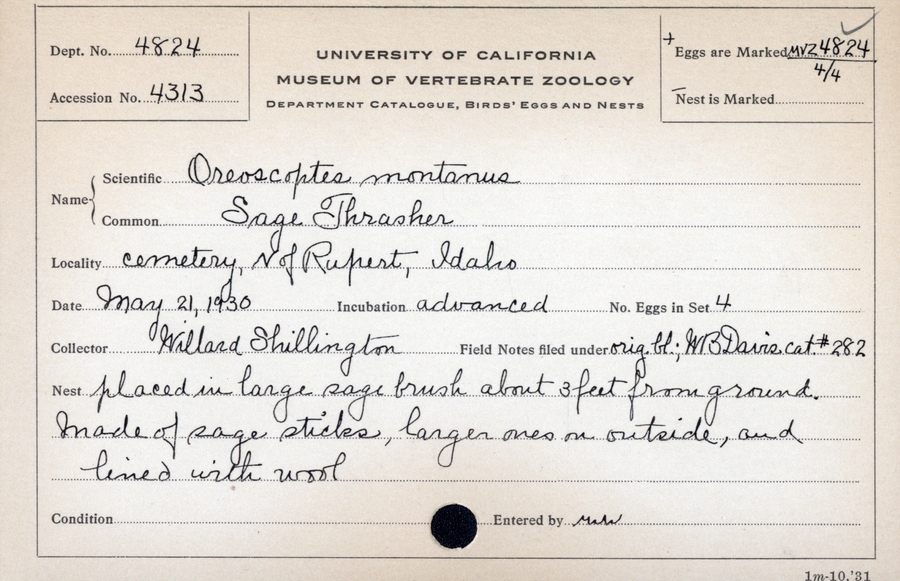 Dept. No. 4824
Accession No. 4313
UNIVERSITY OF CALIFORNIA
MUSEUM OF VERTEBRATE ZOOLOGY
DEPARTMENT CATALOGUE, BIRDS' EGGS AND NESTS
+ Eggs are Marked MVZ 4824
4/4
– Nest is Marked
Name
Scientific Oreoscoptes montanus
Common Sage Thrasher
Locality cemetery, N of Rupert, Idaho
Date May 21, 1930 Incubation advanced No. Eggs in Set 4
Collector Willard Shillington Field Notes filed under orig. bl.; WB Davis cat. # 282
Nest placed in large sage brush about 3 feet from ground.
Made of sage sticks, larger ones on outside, and
lined with wool
Condition Entered by
1m-10,'31